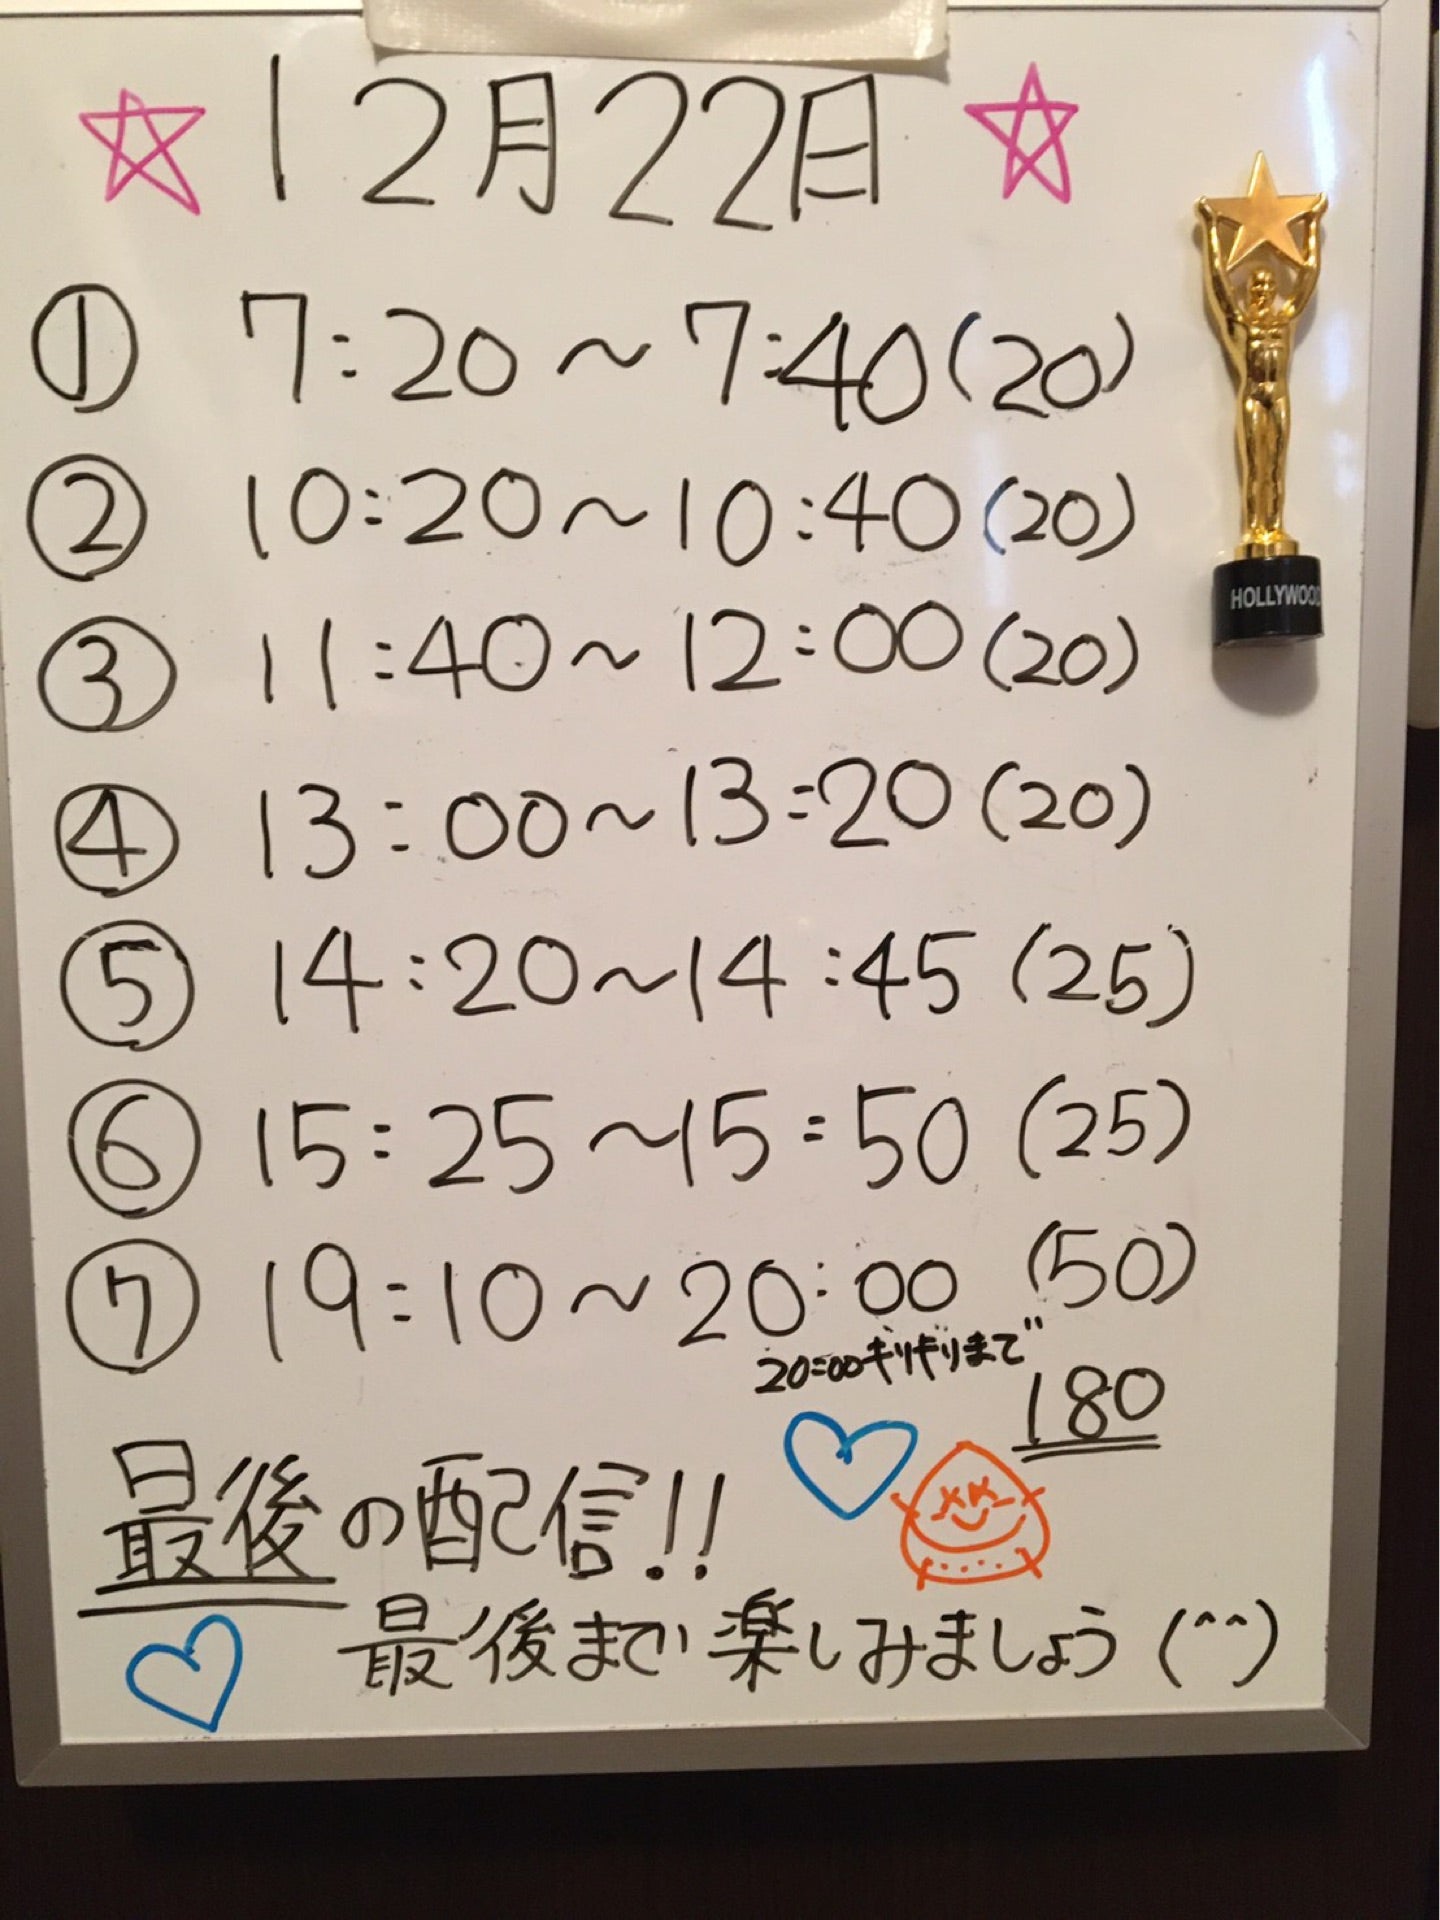 ☆ 12月22日 ☆
① 7:20～7:40(20)
② 10:20～10:40(20)
HOLLYWOOD
③ 11:40～12:00(20)
④ 13:00～13:20(20)
⑤ 14:20～14:45(25)
⑥ 15:25～15:50(25)
⑦ 19:10～20:00(50)
20:00ギリギリまで
180
最後の配信!!
最後まで楽しみましょう(^^)